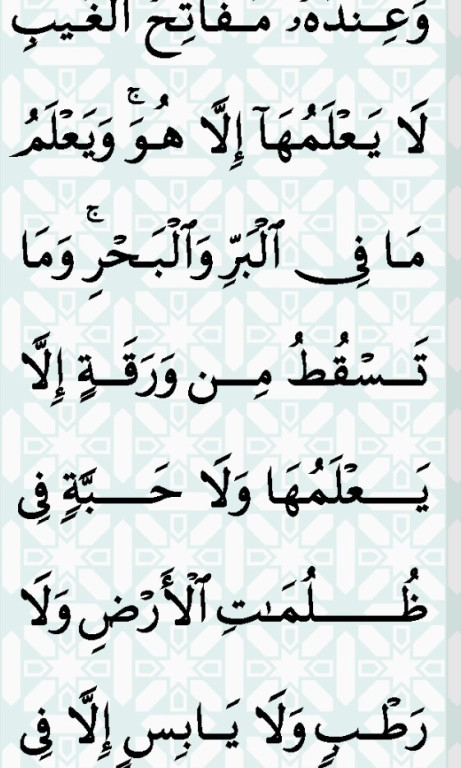 وَعِندَهُۥ مَفَاتِحُ ٱلْغَيْبِ
لَا يَعْلَمُهَآ إِلَّا هُوَ ۚ وَيَعْلَمُ
مَا فِى ٱلْبَرِّ وَٱلْبَحْرِ ۚ وَمَا
تَسْقُطُ مِن وَرَقَةٍ إِلَّا
يَعْلَمُهَا وَلَا حَبَّةٍ فِى
ظُلُمَـٰتِ ٱلْأَرْضِ وَلَا
رَطْبٍ وَلَا يَابِسٍ إِلَّا فِى